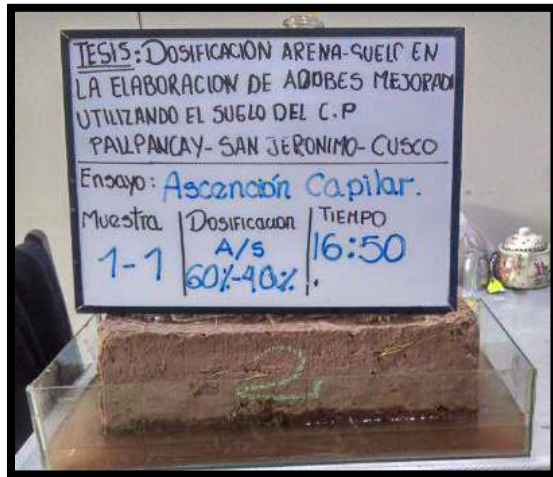 TESIS: DOSIFICACIÓN ARENA-SUELO EN
LA ELABORACION DE ADOBES MEJORAD
UTILIZANDO EL SUELO DEL C.P
PALLPANCAY- SAN JERONIMO- CUSCO
Ensayo: Ascención Capilar.
Muestra Dosificacion TIEMPO
1-1 A/S 16:50
60%-40%
2